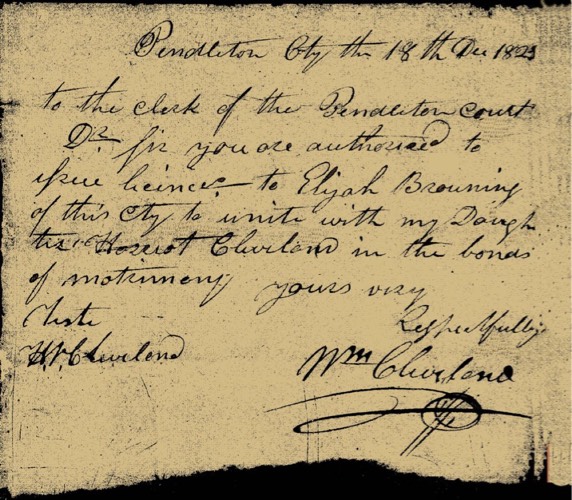 Pendleton Cty the 18th Dec 1823
to the clerk of the Pendleton court
Dr. sir you are authorised to
issue licince to Elijah Browning
of this cty to unite with my Daugh
ter Harriot Cleveland in the bonds
of matrimony yours very
Teste Respectfully
Cleveland Wm Cleveland